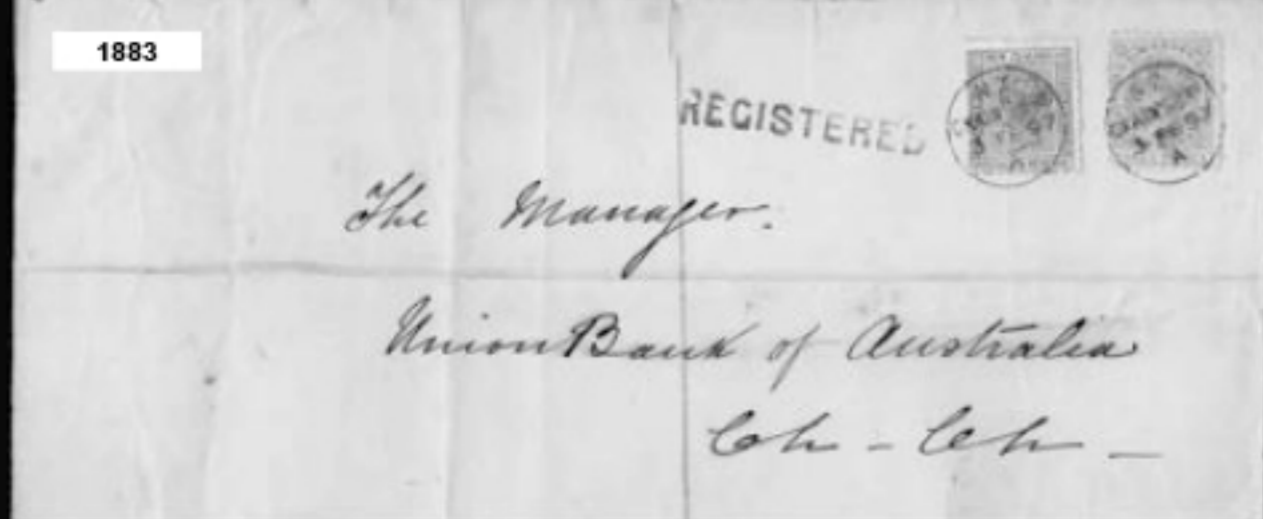 1883
REGISTERED
The Manager.
Union Bank of Australia
Ch - Ch -